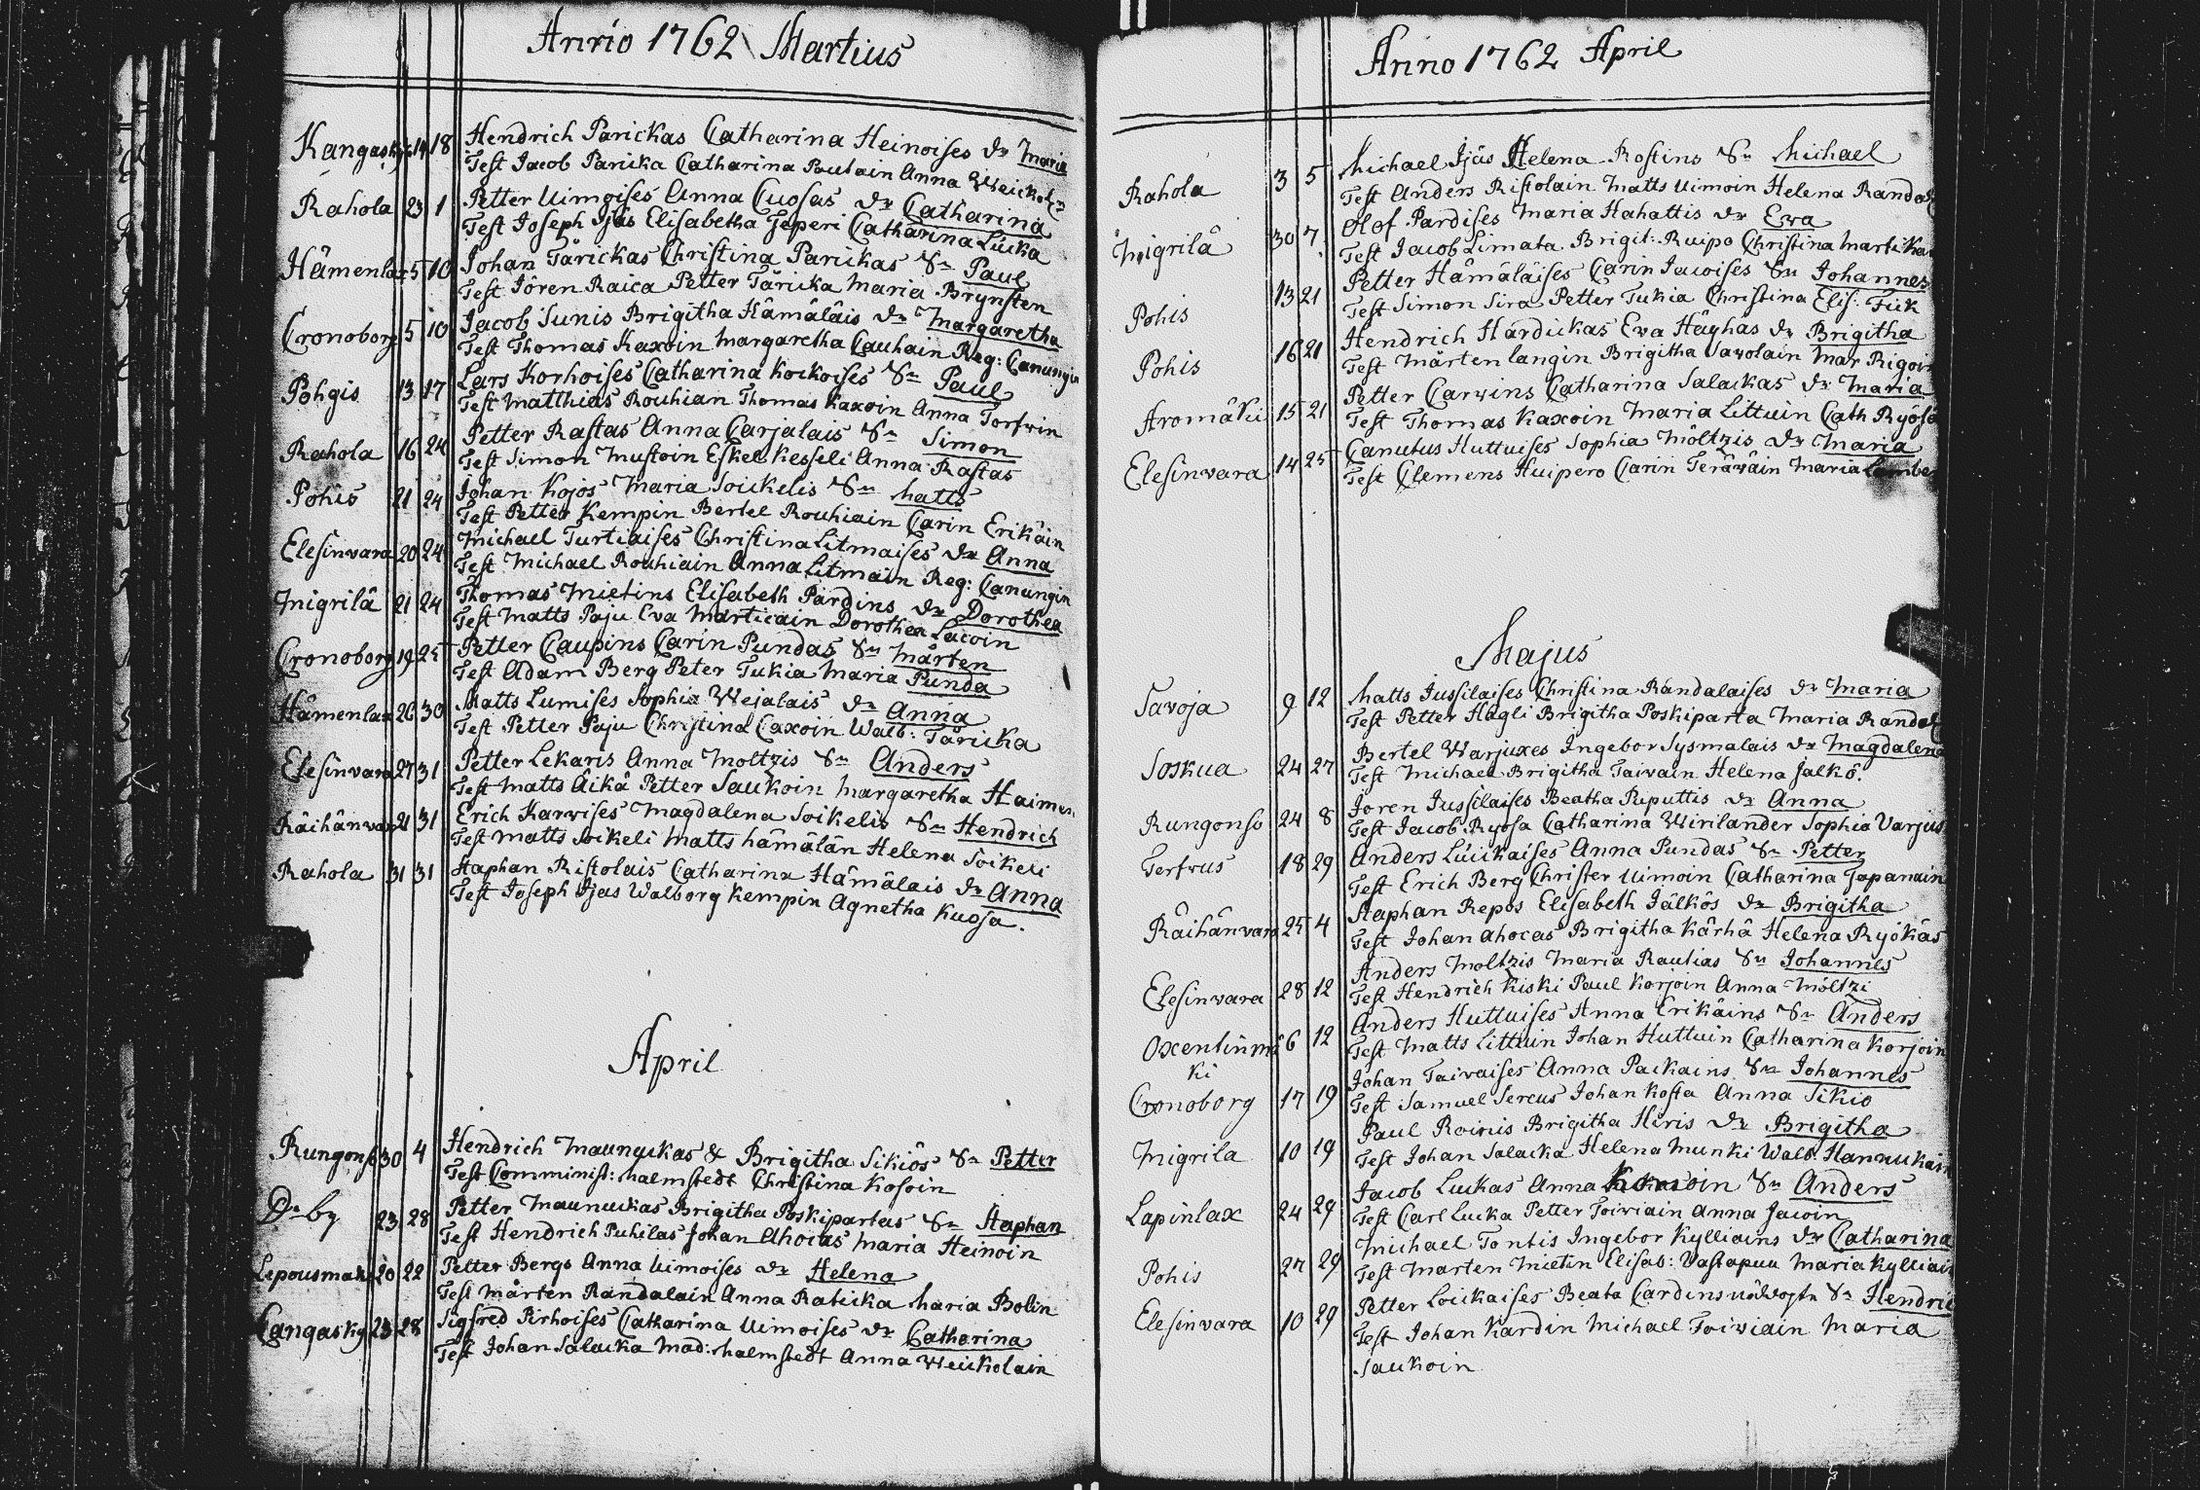 Anno 1762 Martius
Kangasky 14 18 Hendrich Parickas Catharina Heinoises Dr Maria
Test Jacob Paricka Catharina Pautain Anna Weickol
Rahola 23 1 Petter Uimoises Anna Cuosas Dr Catharina
Test Joseph Ijäs Elisabetha Teperi Catharina Lucka
Hämenlax 5 10 Johan Tärickas Christina Parickas Sn Paul
Test Jören Raica Petter Täricka Maria Brynsten
Cronoborg 5 10 Jacob Sunis Brigitha Hämäläis Dr Margaretha
Test Thomas Kaxoin Margaretha Cauhain Reg: Canungin
Pohgis 13 17 Lars Korhoises Catharina Kockoises Sn Paul
Test Matthias Rouhian Thomas Kaxoin Anna Torfvin
Rahola 16 24 Petter Rastas Anna Carjalais Sn Simon
Test Simon Mustoin Eskel Kesseli Anna Rastas
Pohis 21 24 Johan Kojos Maria Soickelis Sn Matts
Test Petter Kempin Bertel Rouhiain Carin Erikäin
Elesinvara 20 24 Michael Turtiaises Christina Litmaises Dr Anna
Test Michael Rouhiain Anna Litmain Reg: Canungin
Migrilä 21 24 Thomas Mietins Elisabeth Pärdins Dr Dorothea
Test Matts Paju Eva Marticain Dorothea Lacoin
Cronoborg 19 25 Petter Caupins Carin Pundas Sn Mårten
Test Adam Berg Peter Tukia Maria Punda
Hämenlax 26 30 Matts Lumises Sophia Wejalais Dr Anna
Test Petter Paju Christina Caxoin Walb: Täricka
Elesinvara 27 31 Petter Lekaris Anna Moltzis Sn Anders
Test Matts Äikä Petter Saukoin Margaretha Haimen
Räihänvara 21 31 Erich Karwises Magdalena Soikelis Sn Hendrich
Test Matts Soikeli Matts Hämälän Helena Soikeli
Rahola 31 31 Staphan Ristolais Catharina Hämälais Dr Anna
Test Joseph Ijas Walborg Kempin Agnetha Kuosa.
April
Rungonso 30 4 Hendrich Maunuckas & Brigitha Sikiös Sn Petter
Test Comminist: Malmstedt Christina Kosoin
D:o by 23 28 Petter Maunuckas Brigitha Poskipartas Sn Staphan
Test Hendrich Puhilas Johan Ahocas Maria Heinoin
Lepousmäk 20 22 Petter Bergs Anna Uimoises Dr Helena
Test Mårten Randalain Anna Raticka Maria Bolin
Cangasky 23 28 Sigfred Pirhoises Catharina Uimoises Dr Catharina
Test Johan Salacka Mad: Malmstedt Anna Weickolain
Anno 1762 April
Rahola 3 5 Michael Ijäs Helena Rostins Sn Michael
Test Anders Ristolain Matts Uimoin Helena Randal
Migrilä 30 7 Olof Pardises Maria Hahattis Dr Ewa
Test Jacob Limata Brigit: Ruipo Christina Martikai
Pohis 13 21 Petter Hämäläises Carin Jacoises Sn Johannes
Test Simon Sira Petter Tukia Christina Elis: Fick
Pohis 16 21 Hendrich Hardickas Eva Häyhäs Dr Brigitha
Test Mårten Langin Brigitha Savolain Mar Rigoin
Aromäki 15 21 Petter Carvins Catharina Salackas Dr Maria
Test Thomas Kaxoin Maria Littuin Cath Ryösä
Elesinvara 14 25 Canutus Huttuises Sophia Möltzis Dr Maria
Test Clemens Huipero Carin Teräväin Maria Lambe
Majus
Savoja 9 12 Matts Jussilaises Christina Randalaises Dr Maria
Test Petter Hägli Brigitha Poskiparta Maria Randal
Soskua 24 27 Bertel Warjuxes Ingebor Sysmalais Dr Magdalena
Test Michael Brigitha Taivain Helena Jalkö.
Rungonso 24 8 Jören Jussilaises Beatha Reputtis Dr Anna
Test Jacob Ryösa Catharina Wirilander Sophia Varjus
Terfvus 18 29 Anders Luickaises Anna Pundas Sn Petter
Test Erich Berg Christer Uimoin Catharina Japanain
Räihänvara 25 4 Staphan Repos Elisabeth Jälkös Dr Brigitha
Test Johan Ahocas Brigitha Kärhä Helena Ryökäs
Elesinvara 28 12 Anders Moltzis Maria Rautias Sn Johannes
Test Hendrich Kiski Paul Korjoin Anna Möltzi
Oxentinmä
ki 6 12 Anders Huttuises Anna Erikäins Sn Anders
Test Matts Littuin Johan Huttuin Catharina Korjoin
Cronoborg 17 19 Johan Taivaises Anna Packains Sn Johannes
Test Samuel Sereus Johan Kosta Anna Sikiö
Migrila 10 19 Paul Roinis Brigitha Hiris Dr Brigitha
Test Johan Salacka Helena Munki Walb: Hannukain
Lapinlax 24 29 Jacob Luckas Anna Sn Anders
Test Carl Lucka Petter Toiviain Anna Jacoin
Pohis 27 29 Michael Tontis Ingebor Kylliains Dr Catharina
Test Marten Mietin Elisab: Vastapuu Maria Kylliain
Elesinvara 10 29 Petter Loickaises Beata Cardins Sn Hendric
Test Johan Kardin Michael Toiviain Maria
Saukoin